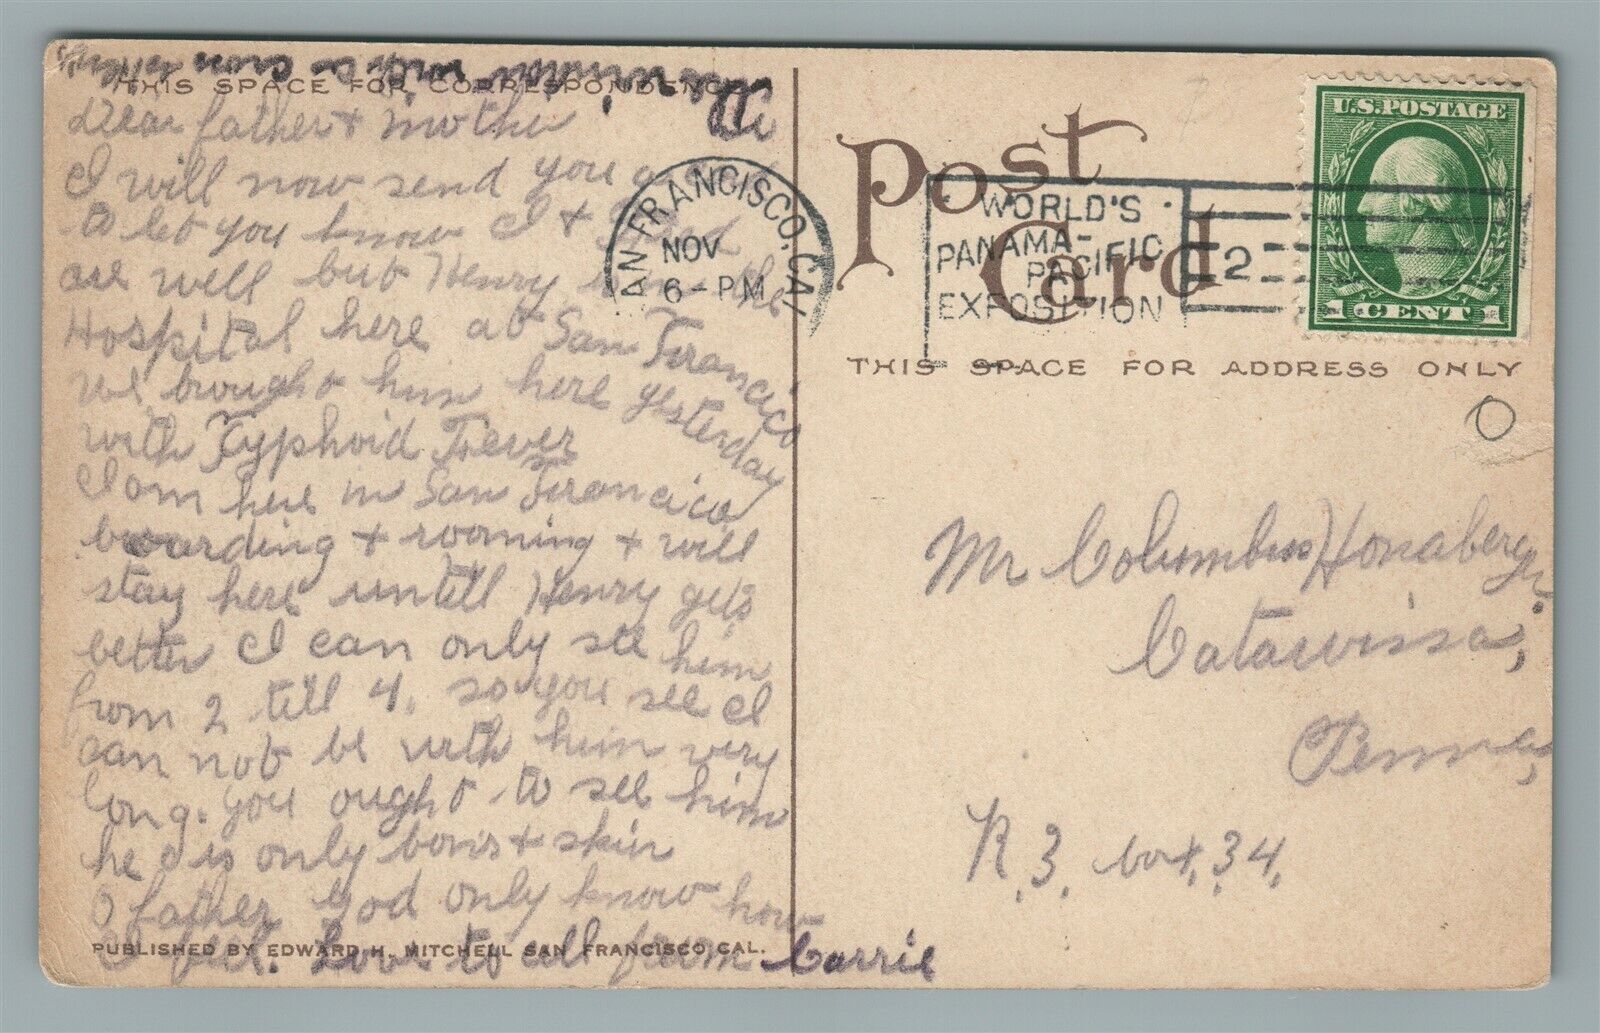 THIS SPACE FOR CORRESPONDENCE
Dear father & mother
I will now send you a
to let you know I & Fred
are well but Henry is in the
Hospital here at San Francico
we brought him here yesterday
with Typhoid Fever
I am here in San Francico
boarding & rooming & will
stay here untill Henry gets
better I can only see him
from 2 till 4. so you see I
can not be with him very
long. you ought to see him
he is only bons & skin
O father God only know how
I feel. Love to all from Carrie
PUBLISHED BY EDWARD H. MITCHELL SAN FRANCISCO, CAL.
SAN FRANCISCO, CAL
NOV
6-PM
WORLD'S
PANAMA-
PACIFIC
EXPOSITION
2
Post
Card
U.S. POSTAGE
1 CENT 1
THIS SPACE FOR ADDRESS ONLY
Mr Columbus Honaberger.
Catawissa,
Penna,
R.3. box.34.